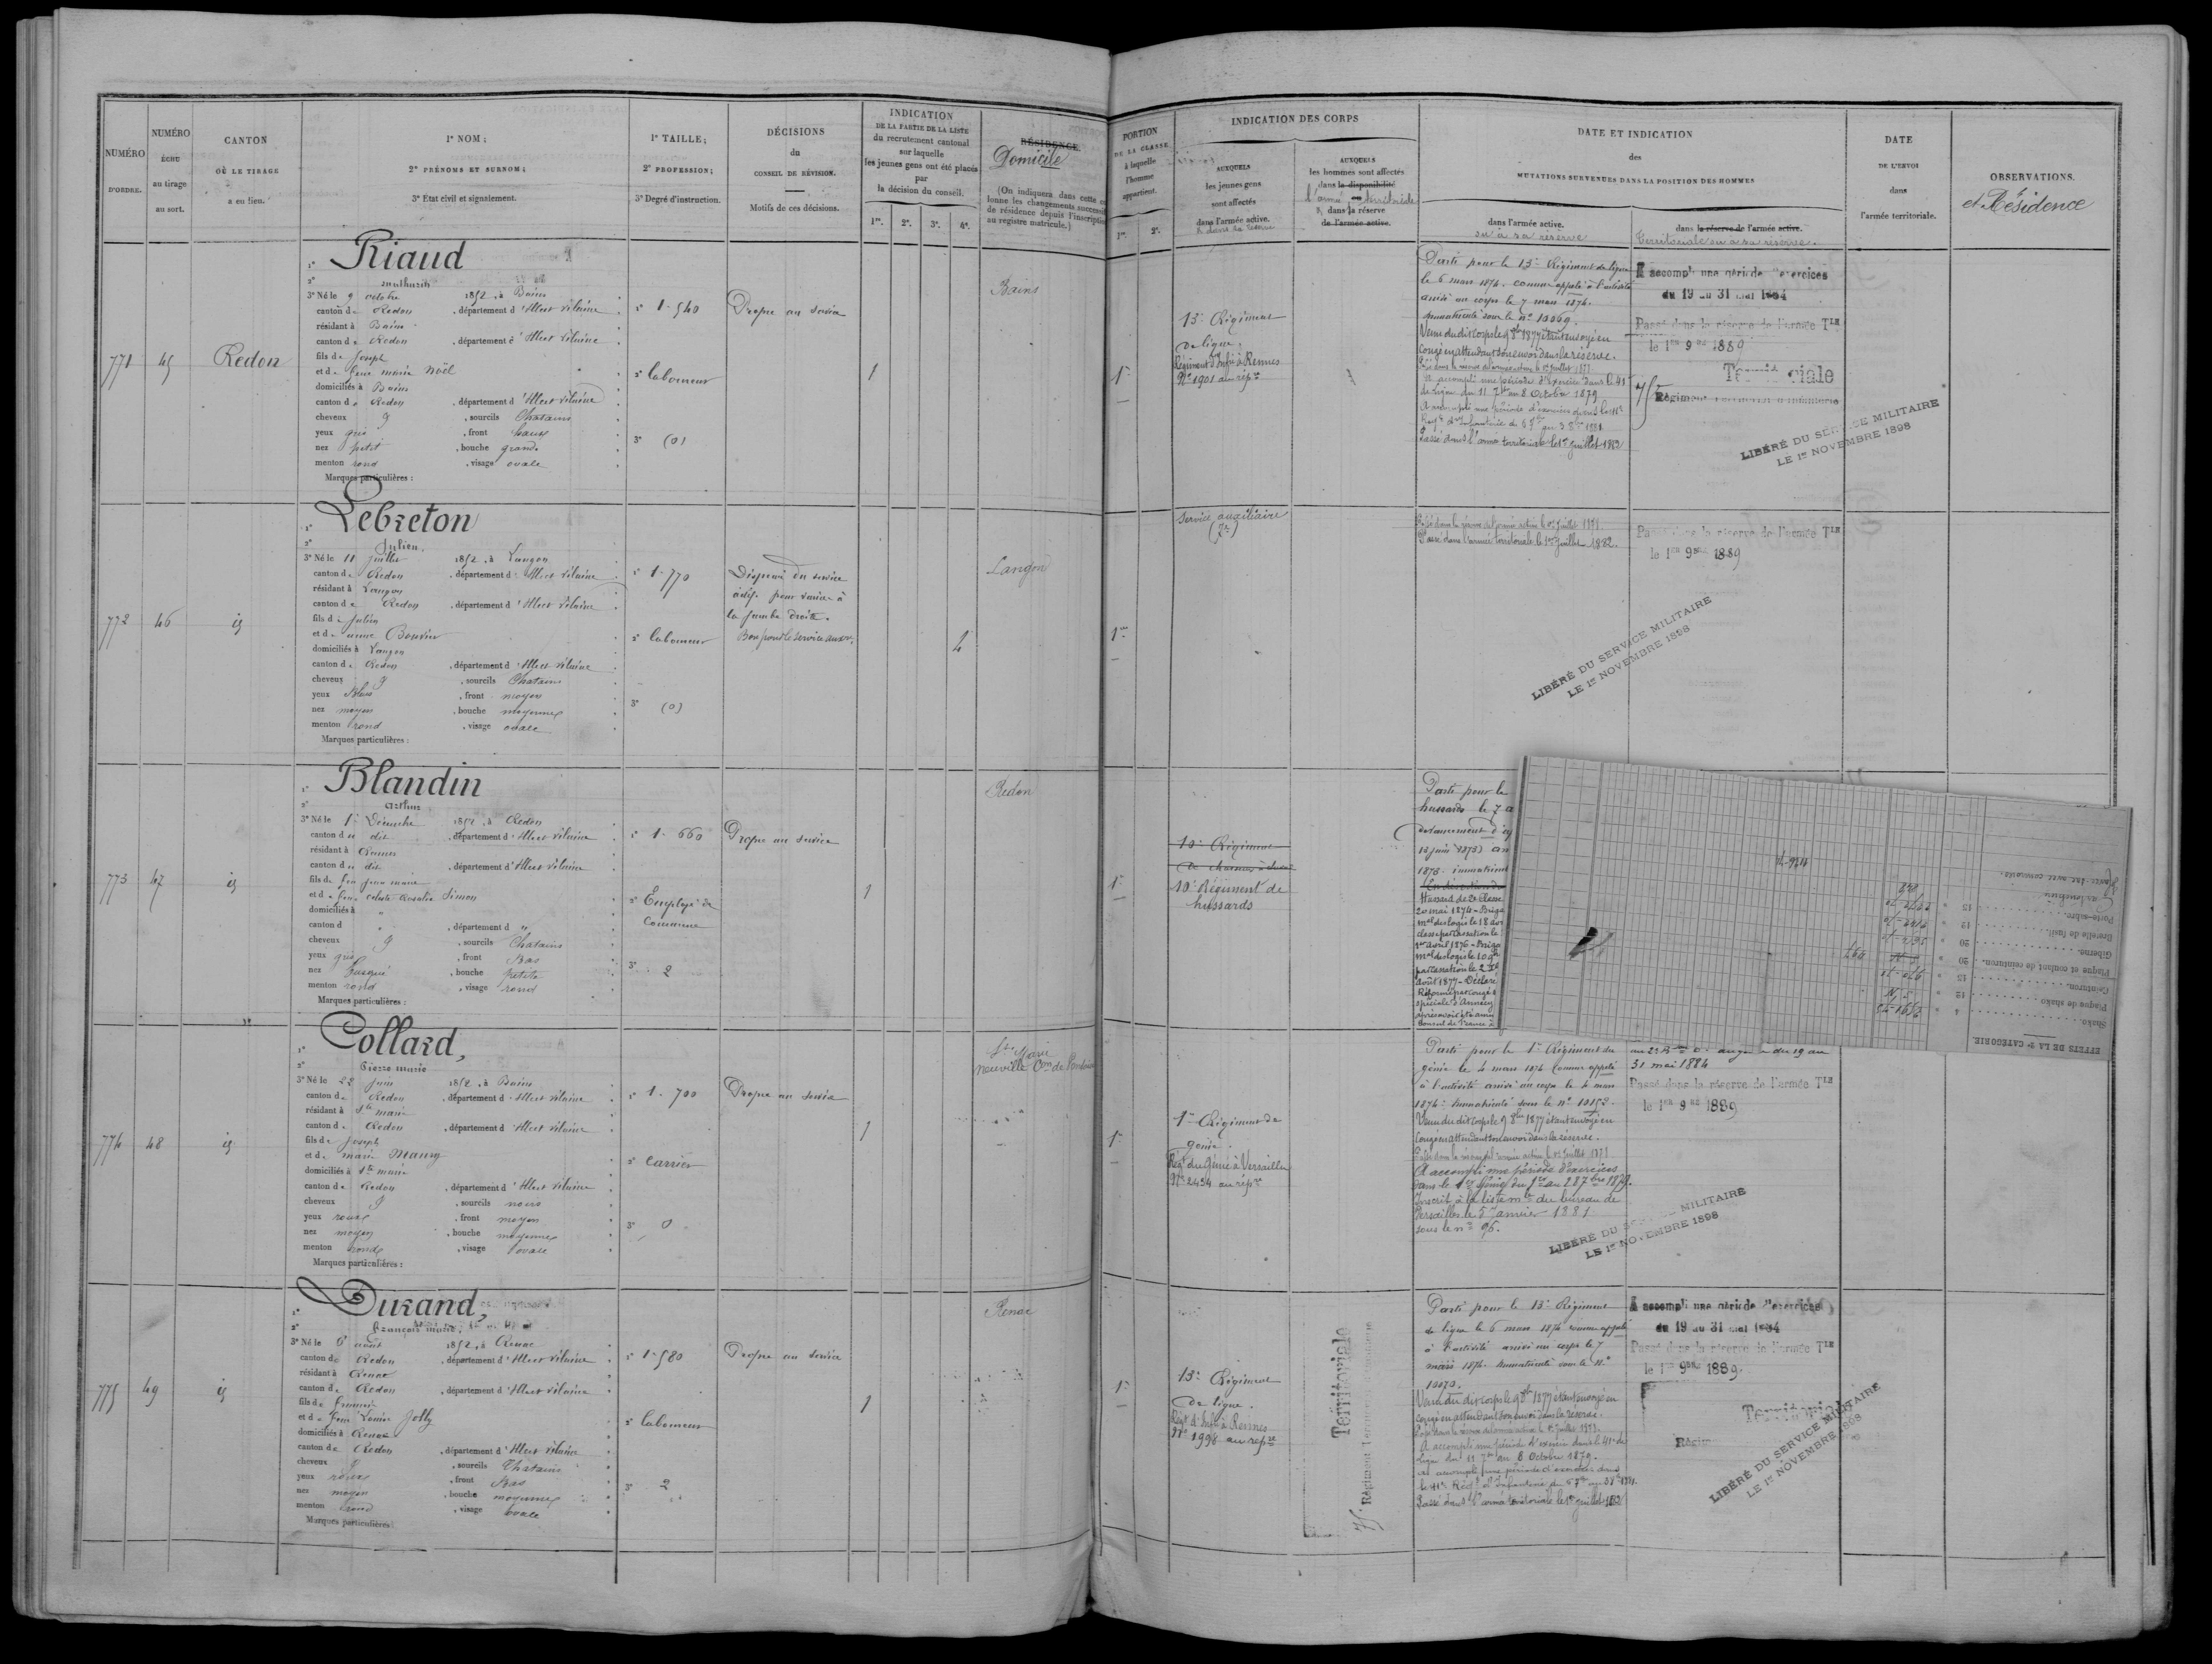 NUMÉRO
D'ORDRE.
NUMÉRO
ÉCHU
au tirage
au sort.
CANTON
OÙ LE TIRAGE
a eu lieu.
1° NOM ;
2° PRÉNOMS ET SURNOM ;
3° État civil et signalement.
1° TAILLE ;
2° PROFESSION ;
3° Degré d'instruction.
DÉCISIONS
du
CONSEIL DE RÉVISION.
Motifs de ces décisions.
INDICATION
DE LA PARTIE DE LA LISTE
du recrutement cantonal
sur laquelle
les jeunes gens ont été placés
par
la décision du conseil.
1re. 2e. 3e. 4e.
RÉSIDENCE.
Domicile
(On indiquera dans cette co
lonne les changements successifs
de résidence depuis l'inscription
au registre matricule.)
PORTION
DE LA CLASSE
à laquelle
l'homme
appartient.
1re. 2e.
INDICATION DES CORPS
AUXQUELS
les jeunes gens
sont affectés
dans l'armée active.
& dans la réserve
AUXQUELS
les hommes sont affectés
dans la disponibilité
ou
l'armée territoriale
& dans la réserve
de l'armée active.
DATE ET INDICATION
des
MUTATIONS SURVENUES DANS LA POSITION DES HOMMES
dans l'armée active.
ou à sa réserve
dans la réserve de l'armée active.
Territoriale ou à sa réserve.
DATE
DE L'ENVOI
dans
l'armée territoriale.
OBSERVATIONS.
et Résidence
771
45
Redon
1° Riaud
2° mathurin
3° Né le 9 octobre 1852, à Bains
canton de Redon, département d'Ille et Vilaine
résidant à Bains
canton de Redon, département d'Ille et Vilaine
fils de Joseph
et de feue marie Noël
domiciliés à Bains
canton de Redon, département d'Ille et Vilaine
cheveux g, sourcils Chatains
yeux gris, front haut
nez petit, bouche grande
menton rond, visage ovale
Marques particulières :
1° 1-540
2° laboureur
3° (0)
Propre au service
1
Bains
1re
13e Régiment
de ligne.
Régiment d'Infie à Rennes
No 1901 au répre
Parti pour le 13e Régiment de ligne
le 6 mars 1874. comme appelé à l'activité
arrivé au corps le 7 mars 1874.
immatriculé sous le no 10069.
Venu du dit corps le 9 8bre 1877 étant envoyé en
congé en attendant son envoi dans la réserve.
A accompli une période d'exercices dans le 41e
de ligne du 11 7bre au 8 Octobre 1879
Passé dans l'armée territoriale le 1er juillet 1882
A accompli une période d'exercices
du 19 au 31 mai 1884
Passé dans la réserve de l'armée TLE
le 1er 9bre 1889
75 Territoriale
Régiment
LIBÉRÉ DU SERVICE MILITAIRE
LE 1er NOVEMBRE 1898
772
46
id
1° Lebreton
2° Julien.
3° Né le 11 juillet 1852, à Langon
canton de Redon, département d'Ille et Vilaine
résidant à Langon
canton de Redon, département d'Ille et Vilaine
fils de Julien
et de anne Bouvier
domiciliés à Langon
canton de Redon, département d'Ille et Vilaine
cheveux g, sourcils Chatains
yeux Bleus, front moyen
nez moyen, bouche moyenne
menton rond, visage ovale
Marques particulières :
1° 1-770
2° laboureur
3° (0)
Dispensé du service
actif. pour varice à
la jambe droite.
Bon pour le service auxre.
4
Langon
1re
Service auxiliaire
Passé dans la réserve de l'armée active le 1er juillet 1878.
Passé dans l'armée territoriale le 1er juillet 1882.
Passé dans la réserve de l'armée TLE
le 1er 9bre 1889
LIBÉRÉ DU SERVICE MILITAIRE
LE 1er NOVEMBRE 1898
773
47
id
1° Blandin
2° arthur
3° Né le 1er Décembre 1852, à Redon
canton du dit, département d'Ille et Vilaine
résidant à Rennes
canton du dit, département d'Ille et Vilaine
fils de feu jean marie
et de feue celeste rosalie Simon
domiciliés à "
canton d ", département d "
cheveux g, sourcils Chatains
yeux gris, front Bas
nez busqué, bouche petite
menton rond, visage rond
Marques particulières :
1° 1-660
2° Employé de
commerce
3° 2
Propre au service
1
Redon
1re
10e Régiment
de chasseurs à cheval
10e Régiment de
hussards
Parti pour le
hussards le 7 a
devancement d'a
13 juin 1873) arr
1873. immatricul
Hussard de 2e Classe
20 mai 1874 - Briga
mal des logis le 18 avr
1er avril 1876 - Briga
août 1877 - Déclaré
Réformé par congé
spéciale d'Annecy
EFFETS DE LA 2e CATÉGORIE
Shako
Plaque de shako
Ceinturon
Plaque et coulant de ceinturon
Giberne
Bretelle de fusil
Porte-sabre
774
48
id
1° Collard,
2° Pierre marie
3° Né le 22 Juin 1852, à Bains
canton de Redon, département d'Ille et Vilaine
résidant à Ste marie
canton de Redon, département d'Ille et Vilaine
fils de Joseph
et de marie Maury
domiciliés à Ste marie
canton de Redon, département d'Ille et Vilaine
cheveux g, sourcils noirs
yeux roux, front moyen
nez moyen, bouche moyenne
menton rond, visage ovale
Marques particulières :
1° 1-700
2° Carrier
3° 0
Propre au service
1
Ste Marie
1re
1er Régiment de
génie.
Régt du Génie à Versailles
No 2424 au répre
Parti pour le 1er Régiment du
génie le 4 mars 1874 comme appelé
à l'activité arrivé au corps le 4 mars
1874. immatriculé sous le no 10152.
Venu du dit corps le 9 8bre 1877 étant envoyé en
congé en attendant son envoi dans la réserve.
A accompli une période d'exercices
dans le 1er Génie du 1er au 28 7bre 1879.
Inscrit à la liste mle du bureau de
Versailles le 5 janvier 1881
sous le no 96.
du 19 au
31 mai 1884
Passé dans la réserve de l'armée TLE
le 1er 9bre 1889
LIBÉRÉ DU SERVICE MILITAIRE
LE 1er NOVEMBRE 1898
775
49
id
1° Durand,
2° François marie,
3° Né le 6 août 1852, à Renac
canton de Redon, département d'Ille et Vilaine
résidant à Renac
canton de Redon, département d'Ille et Vilaine
fils de François
et de feue Louise Jolly
domiciliés à Renac
canton de Redon, département d'Ille et Vilaine
cheveux g, sourcils Chatains
yeux roux, front Bas
nez moyen, bouche moyenne
menton rond, visage ovale
Marques particulières :
1° 1-580
2° laboureur
3° 2
Propre au service
1
Renac
1re
13e Régiment
de ligne.
Régt d'Infie à Rennes
No 1996 au répre
Territoriale
75e Régiment Territorial d'Infanterie
Parti pour le 13e Régiment
de ligne le 6 mars 1874 comme appelé
à l'activité arrivé au corps le 7
mars 1874. immatriculé sous le no
10070.
Venu du dit corps le 9 8bre 1877 étant envoyé en
congé en attendant son envoi dans la réserve.
A accompli une période d'exercices dans le 41e de
ligne du 11 7bre au 8 Octobre 1879.
Passé dans l'armée territoriale le 1er juillet 1882
A accompli une période d'exercices
du 19 au 31 mai 1884
Passé dans la réserve de l'armée TLE
le 1er 9bre 1889.
Territoriale
Régim
LIBÉRÉ DU SERVICE MILITAIRE
LE 1er NOVEMBRE 1898